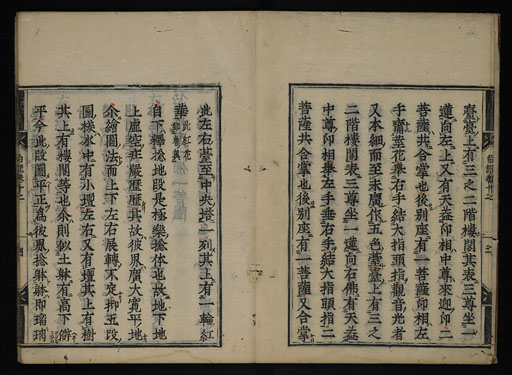 臺臺上有三之二階樓閣其表三尊坐一
蓮向左上又有天蓋印相中尊來迎印二
菩薩共合掌也後別座有一菩薩印相左
手齋蓮花舉右手結大指頭指觀音光者
又本細而至末廣作五色臺臺上有三之
二階樓閣表三尊坐一蓮向右佛有天蓋
中尊印相舉左手垂右手結大指頭指二
菩薩共合掌也後別座有一菩薩又合掌
此左右臺至中央塔一列其上有一輪紅
華
自下輪捻地段是極樂捻体也故地下地
上虛空班嚴歷歷其故彼界廣大寬平地
余繪圖法而上下左右展轉不定抑五段
圖樣水中有小壇左右又有壇其上有樹
其上有樓閣等也余則似土躰有高下斜
平今此段圖平正為彼界捻躰躰即瑠璃